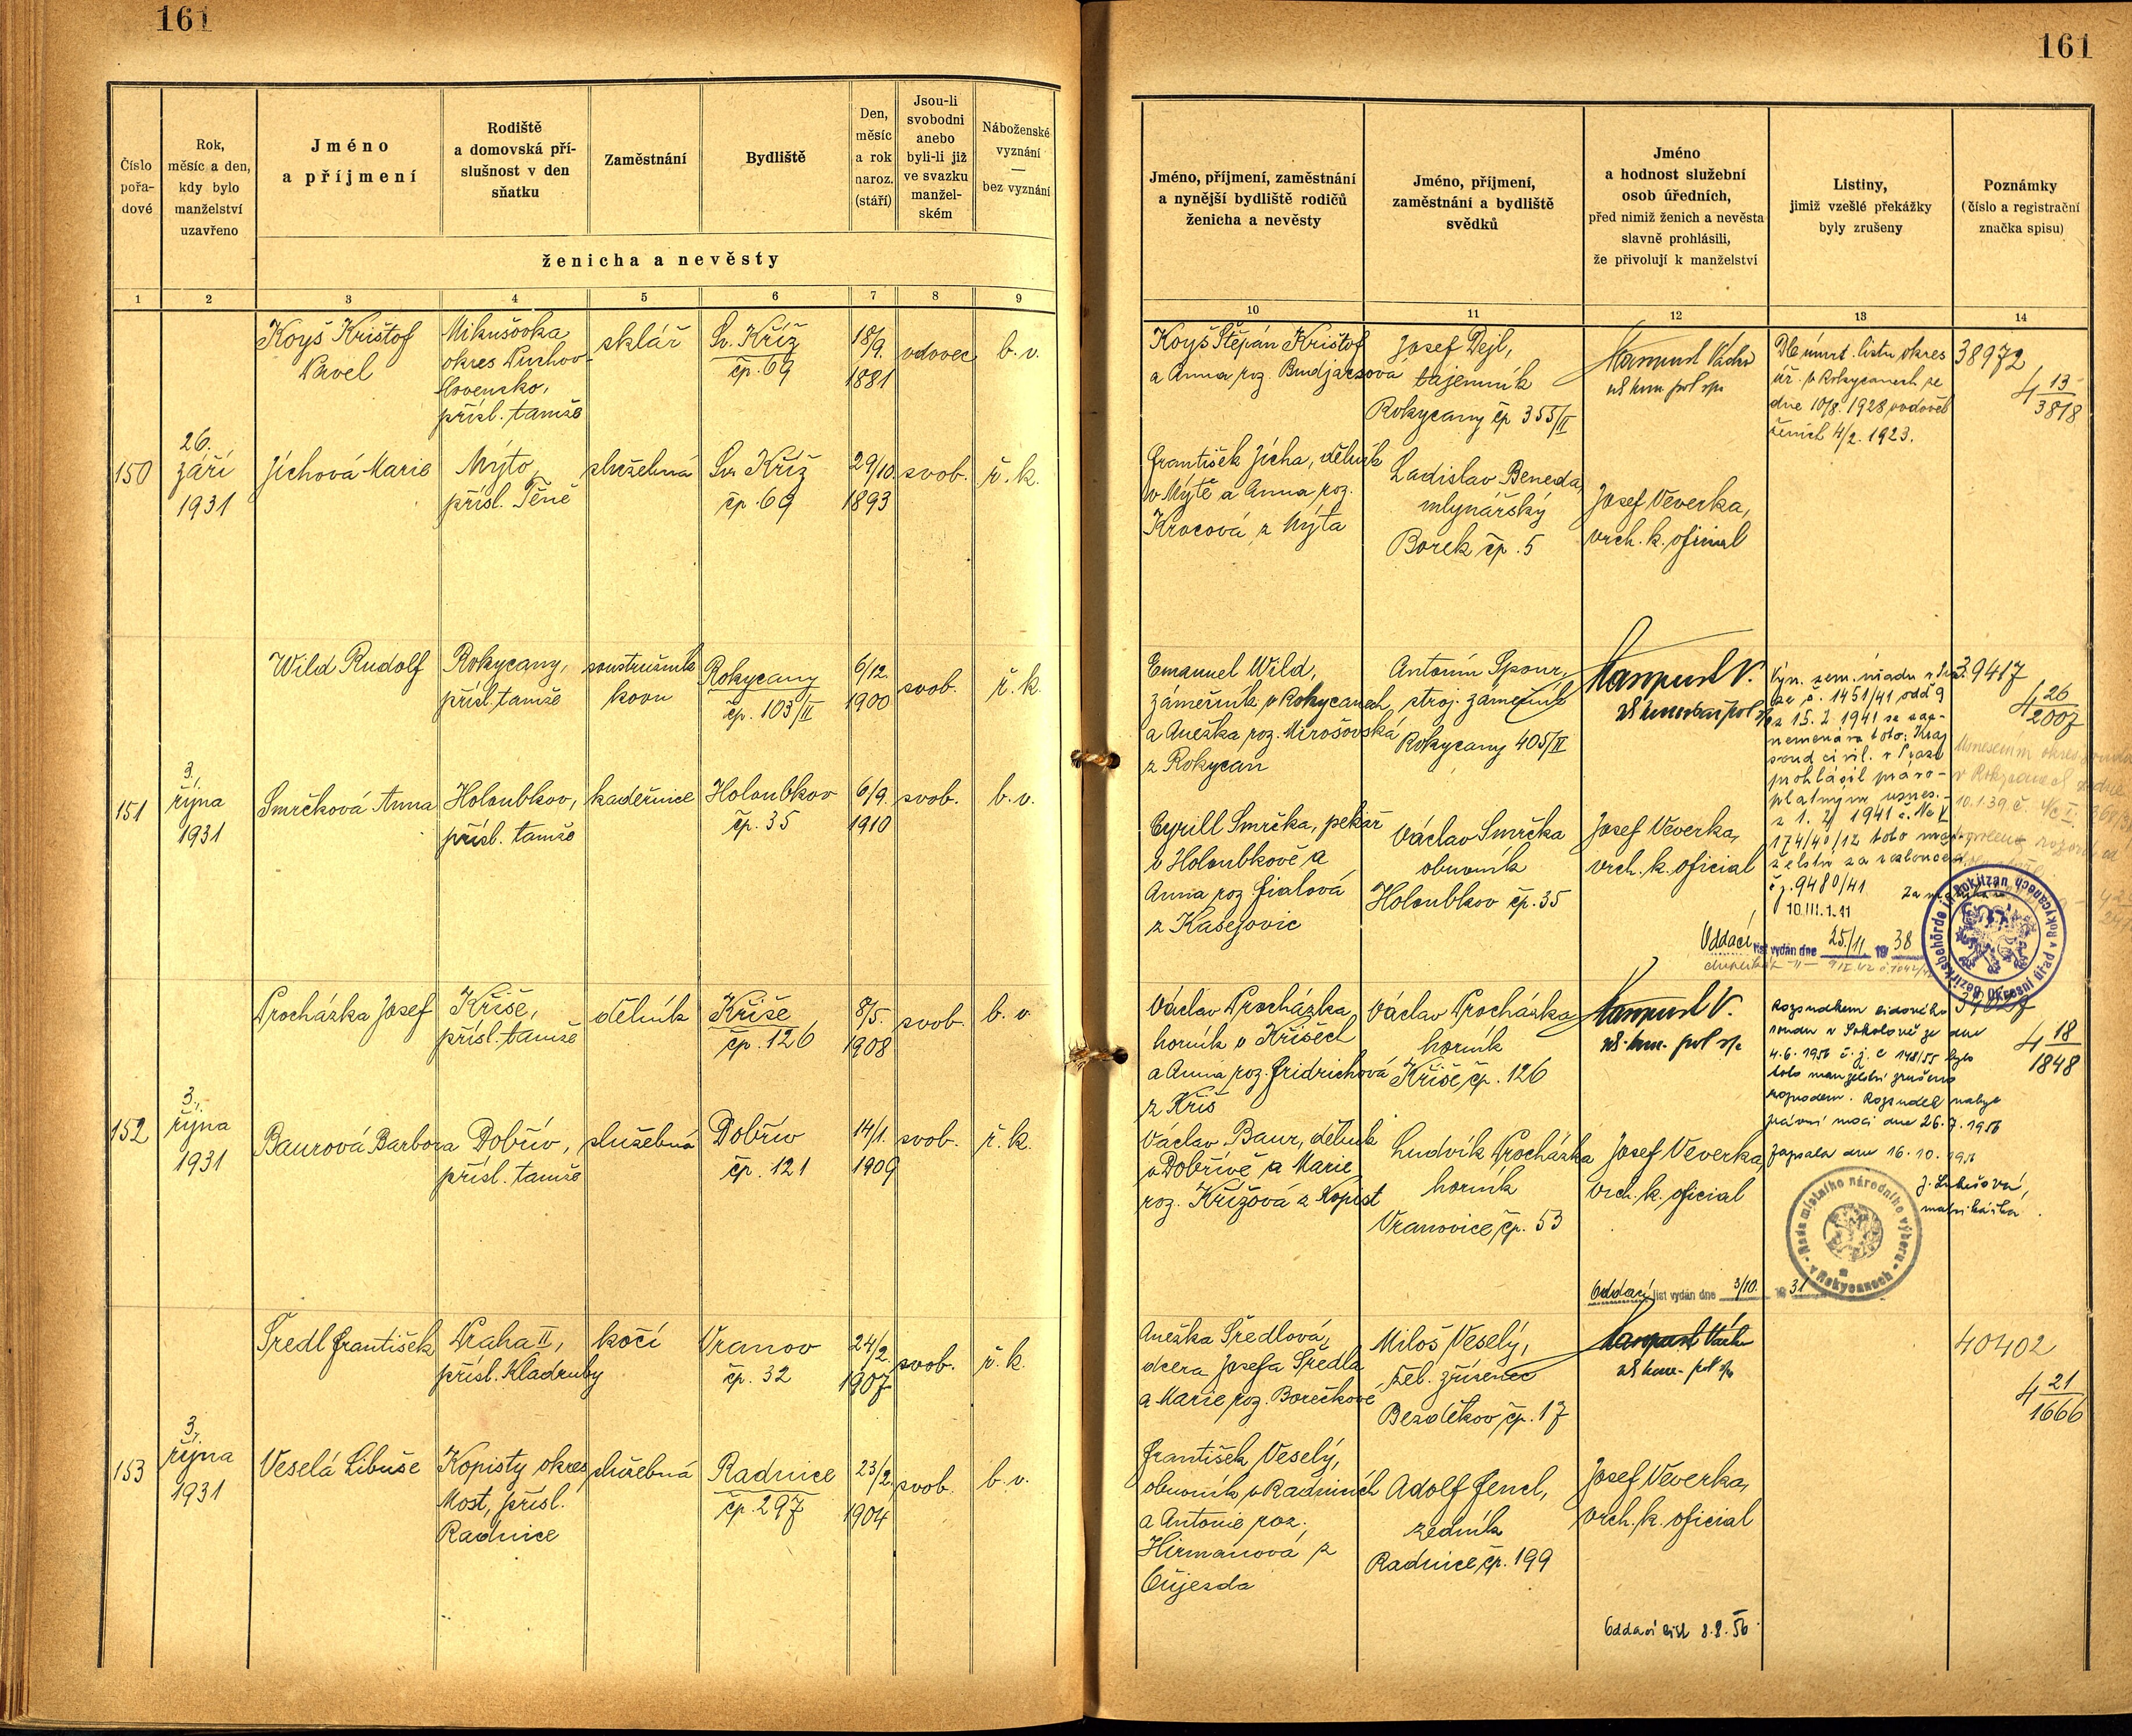 161
161
Číslo pořa- dové
Rok, měsíc a den, kdy bylo manželství uzavřeno
Jméno a příjmení
Rodiště a domovská pří- slušnost v den sňatku
Zaměstnání
Bydliště
Den, měsíc a rok naroz. (stáří)
Jsou-li svobodni anebo byli-li již ve svazku manžel- ském
Náboženské vyznání — bez vyznání
ženicha a nevěsty
1 2 3 4 5 6 7 8 9
Jméno, příjmení, zaměstnání a nynější bydliště rodičů ženicha a nevěsty
Jméno, příjmení, zaměstnání a bydliště svědků
Jméno a hodnost služební osob úředních, před nimiž ženich a nevěsta slavně prohlásili, že přivolují k manželství
Listiny, jimiž vzešlé překážky byly zrušeny
Poznámky (číslo a registrační značka spisu)
10 11 12 13 14
150
26.
září
1931
Koyš Krištof
Pavel
Mikušovka
okres Puchov-
Slovensko,
přísl. tamže
sklář
Sv. Kříž
čp. 69
18/9.
1881
vdovec
b. v.
Jíchová Marie
Mýto,
přísl. Těně
služebná
Sv. Kříž
čp. 69
29/10.
1893
svob.
ř. k.
Koyš Štěpán Krištof
a Anna roz.
František Jícha, dělník
v Mýtě a Anna roz.
Krocová z Mýta
Josef Dejl,
tajemník
Rokycany čp 355/II
Ladislav Beneda,
mlynářský
Borek čp. 5
Josef Veverka,
vrch. k. oficial
Dle úmrt. listu okres
úř. v Rokycanech ze
dne 10/8. 1928 vdověl
ženich 4/2. 1923.
38972
4 13/3818
151
3.
října
1931
Wild Rudolf
Rokycany,
přísl. tamže
soustružník
kovu
Rokycany
čp. 103/II
6/12.
1900
svob.
ř. k.
Smrčková Anna
Holoubkov,
přísl. tamže
kadeřnice
Holoubkov
čp. 35
6/9.
1910
svob.
b. v.
Emanuel Wild,
zámečník v Rokycanech
a Anežka roz. Mirošovská
z Rokycan
Cyrill Smrčka, pekař
v Holoubkově a
Anna roz Fialová
z Kasejovic
Antonín Spour,
stroj. zámečník
Rokycany 405/II
Václav Smrčka
obuvník
Holoubkov čp. 35
Josef Veverka,
vrch. k. oficial
Výn. zem. úřadu v Pra-
ze č. 1451/41 odd 9
z 15. 2. 1941 se zaz-
namenává toto: Kraj.
soud civil. v Praze
prohlásil právo-
platným usnes.
174/40/12 toto man-
želství za rozloučené.
čj. 9480/41
10.III.1941
39417
4 26/2007
Oddací list vydán dne 25./11. 1938
Bezirksbehörde in Rokitzan
Okresní úřad v Rokycanech
152
3.
října
1931
Procházka Josef
Kříše,
přísl. tamže
dělník
Kříše
čp. 126
8/5.
1908
svob.
b. v.
Baurová Barbora
Dobřív,
přísl. tamže
služebná
Dobřív
čp. 121
14/1.
1909
svob.
ř. k.
Václav Procházka,
horník v Kříších
a Anna roz. Fridrichová
z Kříš
Václav Baur, dělník
v Dobřívě a Marie
roz. Křížová z Kopist
Václav Procházka
horník
Kříše čp. 126
Ludvík Procházka
horník
Vranovice čp. 53
Josef Veverka,
vrch. k. oficial
Rozsudkem lidového
soudu v Sokolově ze dne
4.6.1956 č. j. C 148/55 bylo
toto manželství zrušeno
rozvodem. Rozsudek nabyl
právní moci dne 26.7.1956
Zapsala dne 16.10.1956
matrikářka
4 18/1848
Rada místního národního výboru
v Rokycanech
Oddací list vydán dne 3/10. 1931
153
3.
října
1931
Šredl František
Praha II,
přísl. Kladruby
kočí
Vranov
čp. 32
24/2.
1907
svob.
ř. k.
Veselá Libuše
Kopisty okres
Most, přísl.
Radnice
služebná
Radnice
čp. 297
23/2.
1904
svob.
b. v.
Anežka Šredlová,
dcera Josefa Šredla
a Marie roz. Borečkové
František Veselý,
obuvník v Radnicích
a Antonie roz.
Hirmanová z
Újezda
Miloš Veselý,
žel. zřízenec
Bezděkov čp. 17
Adolf Fencl,
zedník
Radnice čp. 199
Josef Veverka,
vrch. k. oficial
40402
4 21/1666
Oddací list 8.8.56